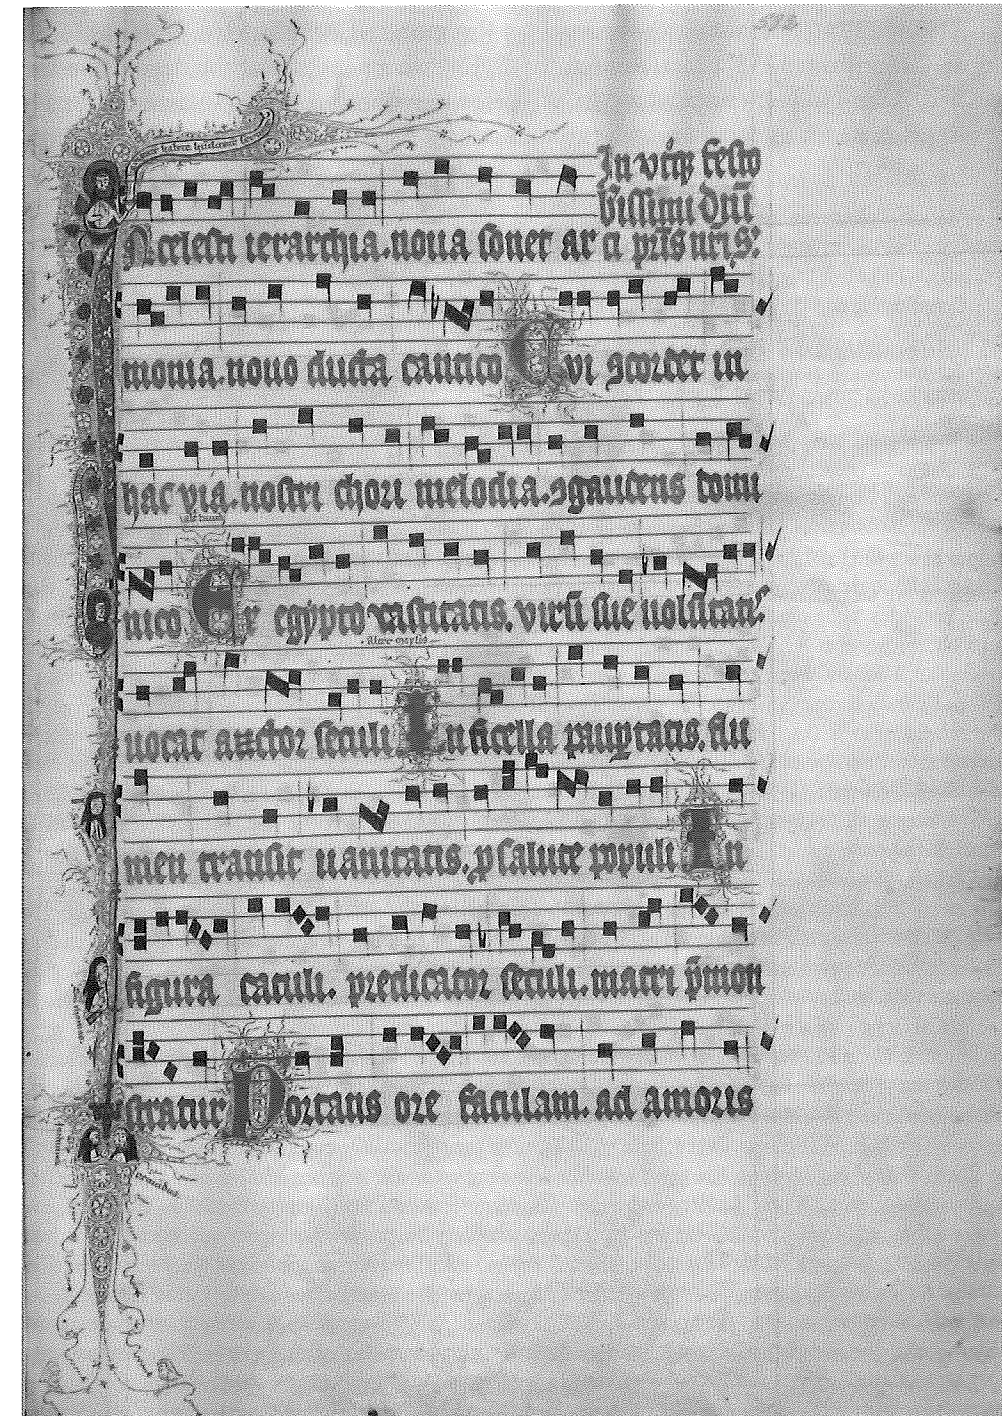 In utroque festo
beatissimi dñi
N celesti ierarchia. noua sonet ar ci pr̄is nr̄i s:
monia. nouo ducta cantico Cvi ꝯcordet in
hac via. nostri chori melodia. ꝯgaudens domi
nico Er egypto vastitatis. virū sue uolūtatis
uocat auctor seculi In ficella paup̱tatis. flu
men transit uanitatis. ꝓ salute populi In
figura catuli. predicator seculi. matri p̄mon
stratur Portans ore faculam. ad amoris